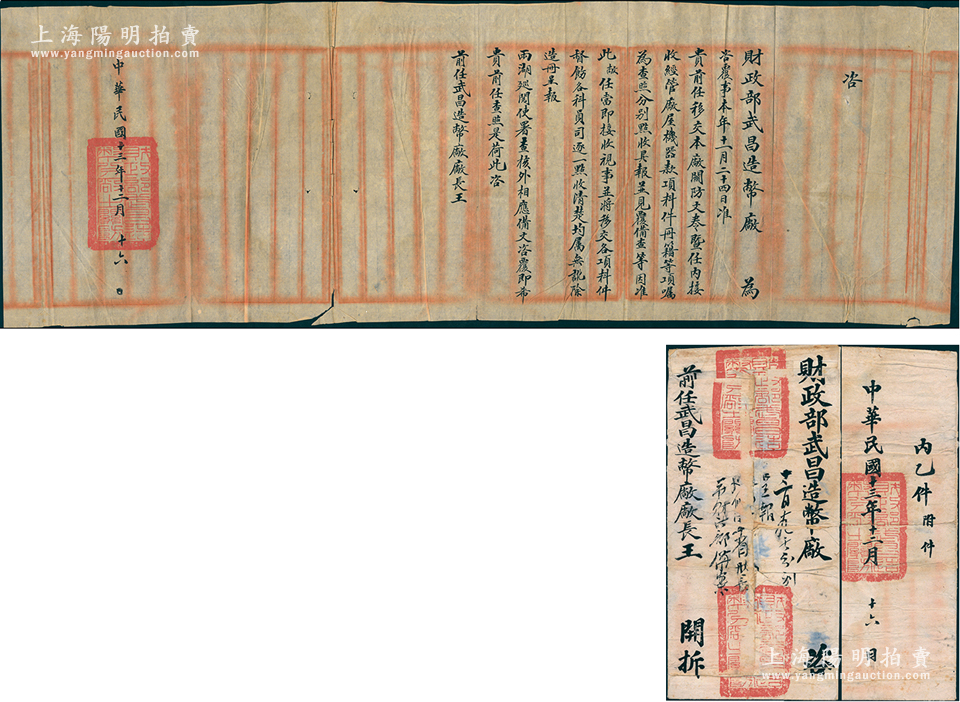 上海陽明拍賣
www.yangmingauction.com
咨
財政部武昌造幣廠 為
咨覆事本年十一月二十四日准
貴前任移交本廠關防文卷暨任內接
收經管廠屋機器款項料件冊籍等項囑
為查照分別點收具報並見覆備查等因准
此敝任當即接收視事並將移交各項料件
督飭各科員司逐一點收清楚均屬無訛除
造冊呈報
兩湖巡閱使署查核外相應備文咨覆即希
貴前任查照是荷此咨
前任武昌造幣廠廠長王
中華民國十三年十二月十六日
丙乙件附件
中華民國十三年十二月十六日
財政部武昌造幣廠 咨
前任武昌造幣廠廠長王 開拆
上海陽明拍賣
www.yangmingauction.com